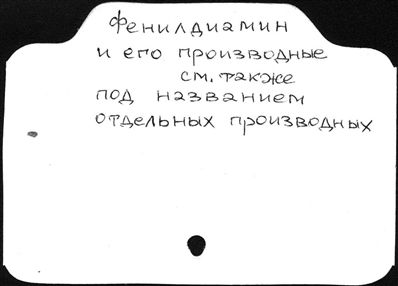 Фенилдиамин
и его производные
см. также
под названием
отдельных производных